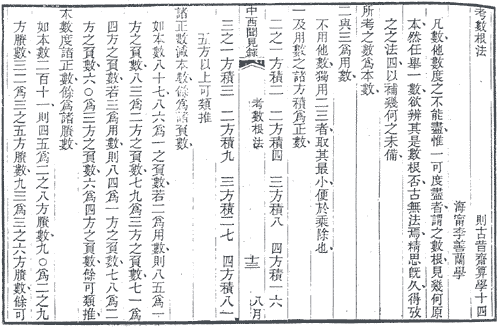 考數根法　則古昔齋算學十四
海甯李善蘭學
凡數他數度之不能盡惟一可度盡者謂之數根見幾何原
本然任舉一數欲辨其是數根否古無法焉精思旣久得攷
之之法四以補幾何之未備
所考之數爲本數
二與三爲用數
不用他數獨用二三者取其最小便於乘除也
一及用數之諸方積爲正數
二之一方積二　二方積四　三方積八　四方積一六
中西聞見錄　考數根法　十三　八月
三之一方積三　二方積九　三方積二七　四方積八一
五方以上可類推
諸正數減本數餘爲諸負數
如本數八十七八六爲一之負數若二爲用數則八五爲一
方之負數八三爲二方之負數七九爲三方之負數七一爲
四方之負數若三爲用數則八四爲一方之負數七八爲二
方之負數六〇爲三方之負數六爲四方之負數餘可類推
本數度諸正數餘爲諸賸數
如本數二百十一則四五爲二之八方賸數九〇爲二之九
方賸數三二爲三之五方賸數九三爲三之六方賸數餘可